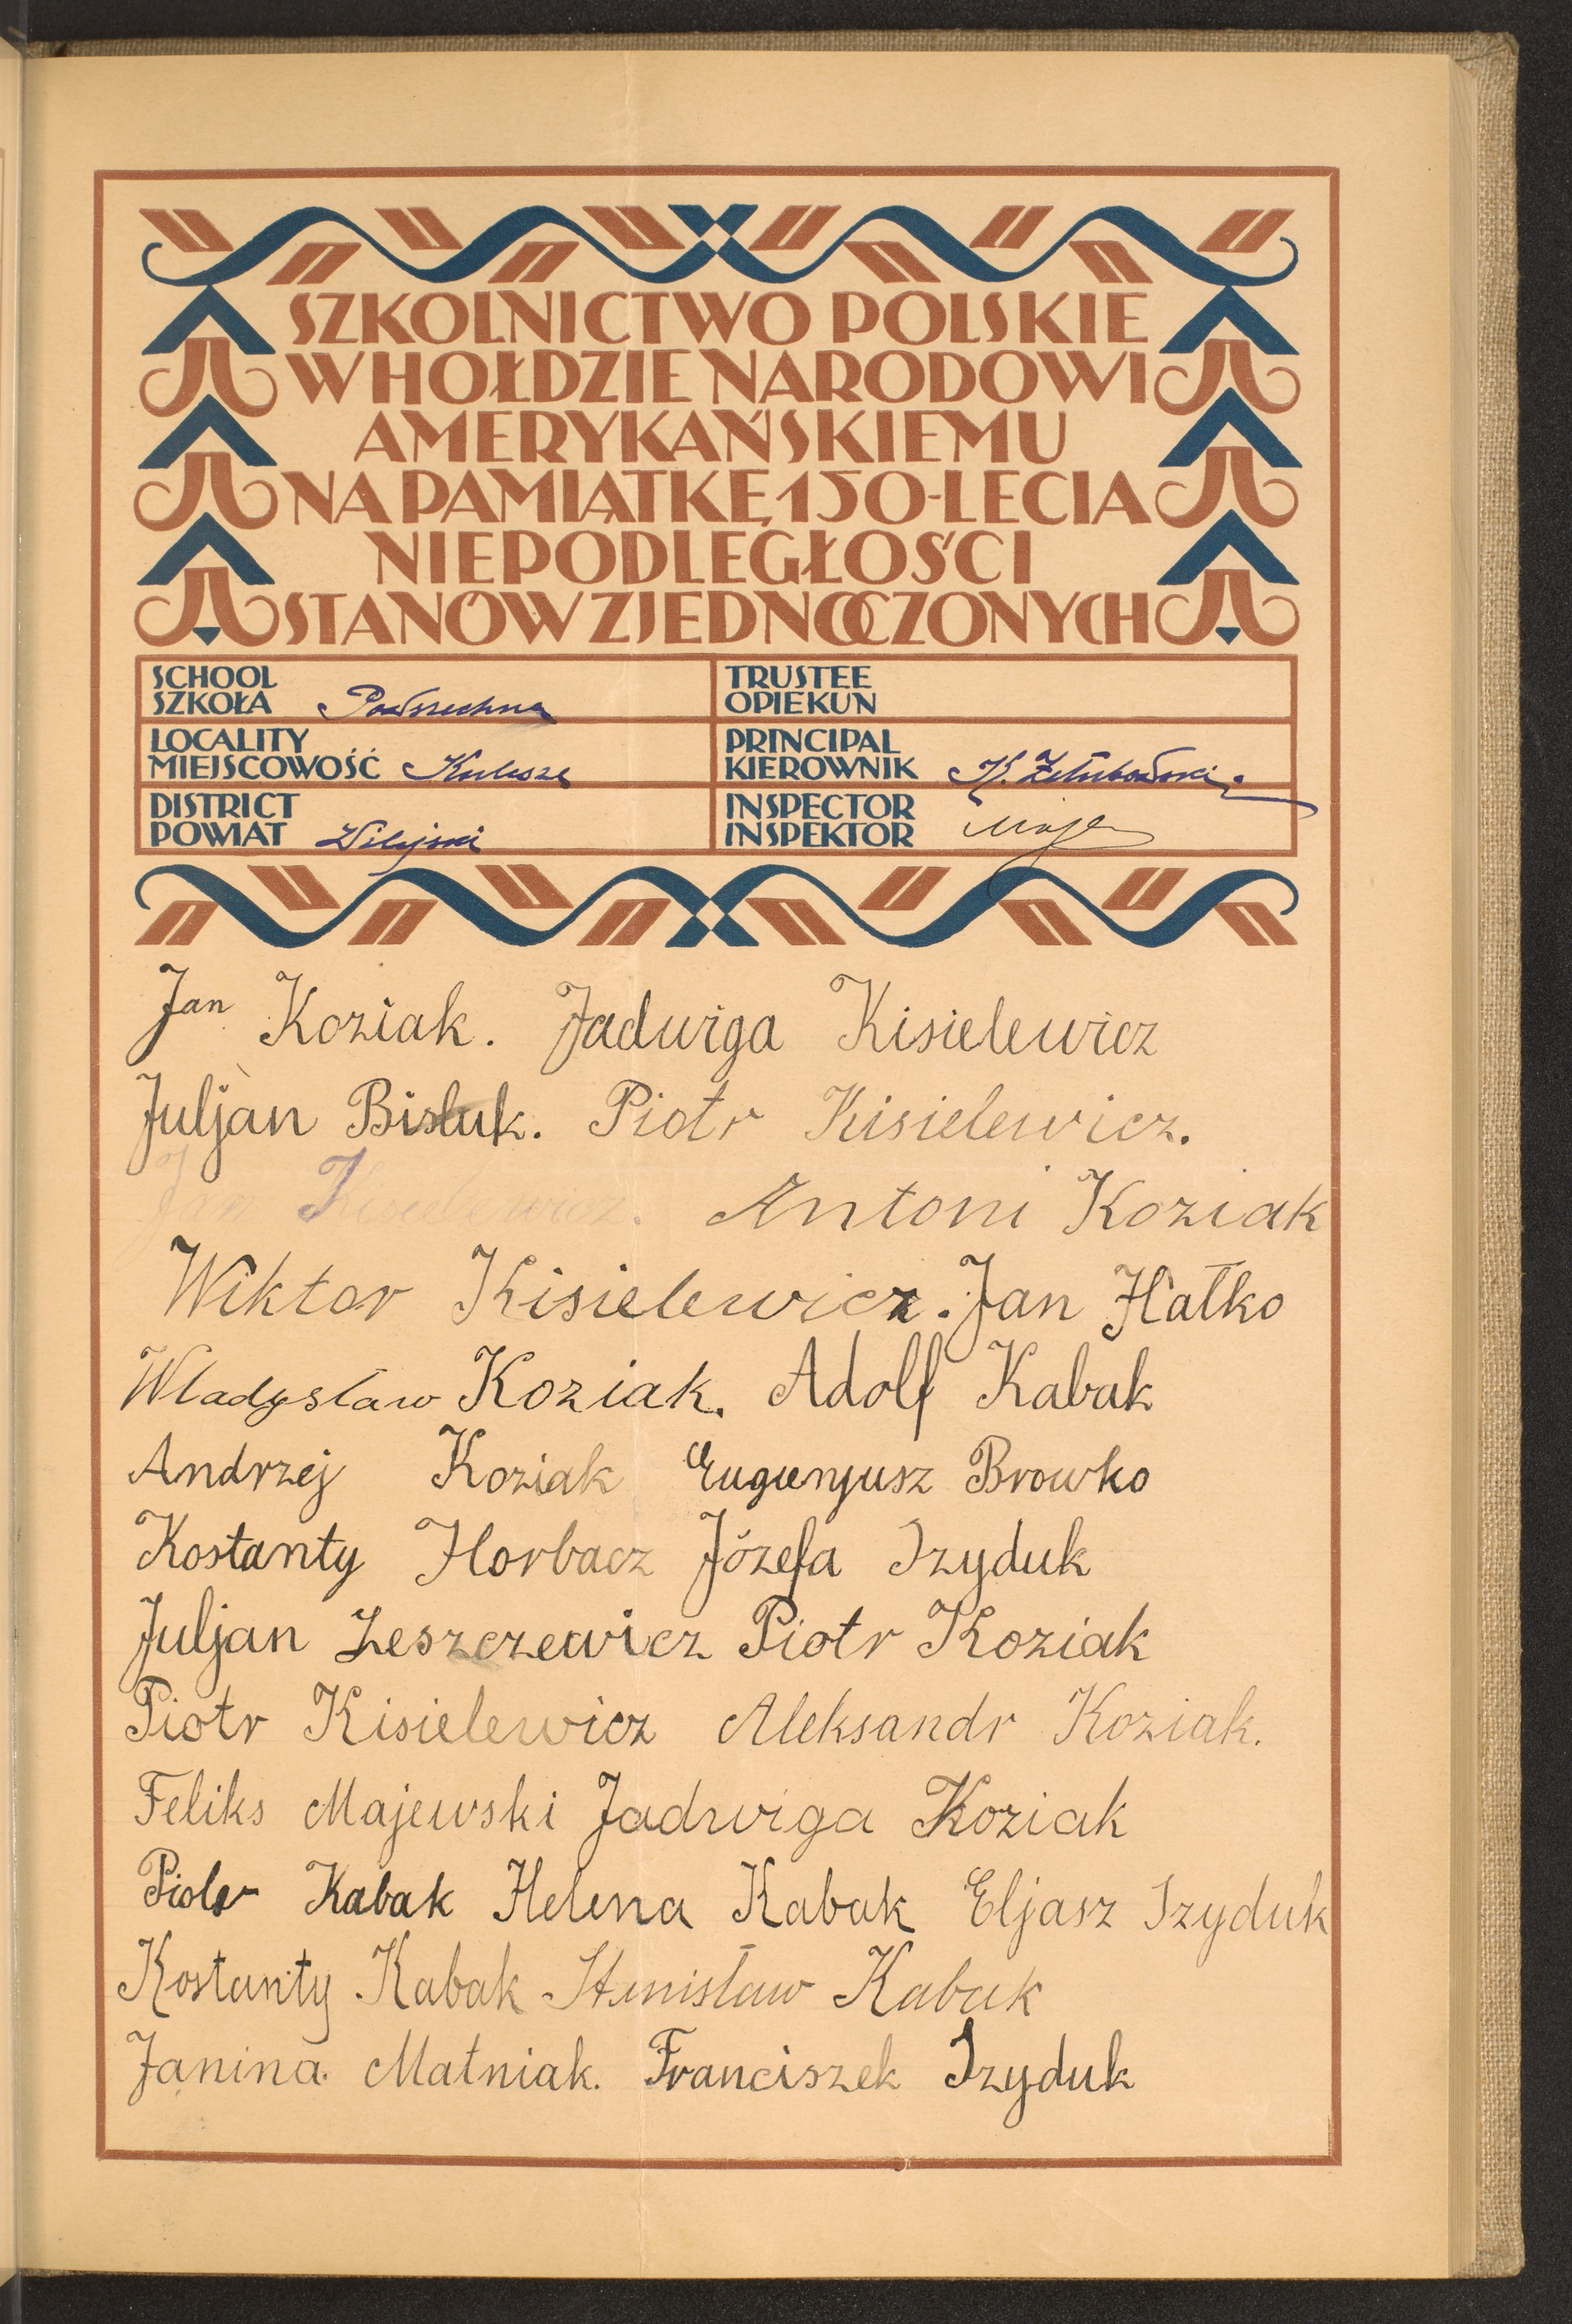 SZKOLNICTWO POLSKIE
W HOŁDZIE NARODOWI
AMERYKAŃSKIEMU
NA PAMIĄTKĘ 150-LECIA
NIEPODLEGŁOŚCI
STANÓW ZJEDNOCZONYCH
SCHOOL
SZKOŁA Powszechna
TRUSTEE
OPIEKUN
LOCALITY
MIEJSCOWOŚĆ Kulesze
PRINCIPAL
KIEROWNIK K.
DISTRICT
POWIAT Wilejski
INSPECTOR
INSPEKTOR
Jan Koziak. Jadwiga Kisielewicz
Juljan Bisluk. Piotr Kisielewicz.
Jan Kisielewicz. Antoni Koziak
Wiktor Kisielewicz. Jan Hałko
Władysław Koziak. Adolf Kabak
Andrzej Koziak Eugienjusz Browko
Kostanty Horbacz Józefa Izyduk
Juljan Leszczewicz Piotr Koziak
Piotr Kisielewicz Aleksandr Koziak.
Feliks Majewski Jadwiga Koziak
Piotr Kabak Helena Kabak Eljasz Izyduk
Kostanty Kabak Stanisław Kabak
Janina. Matniak. Franciszek Izyduk